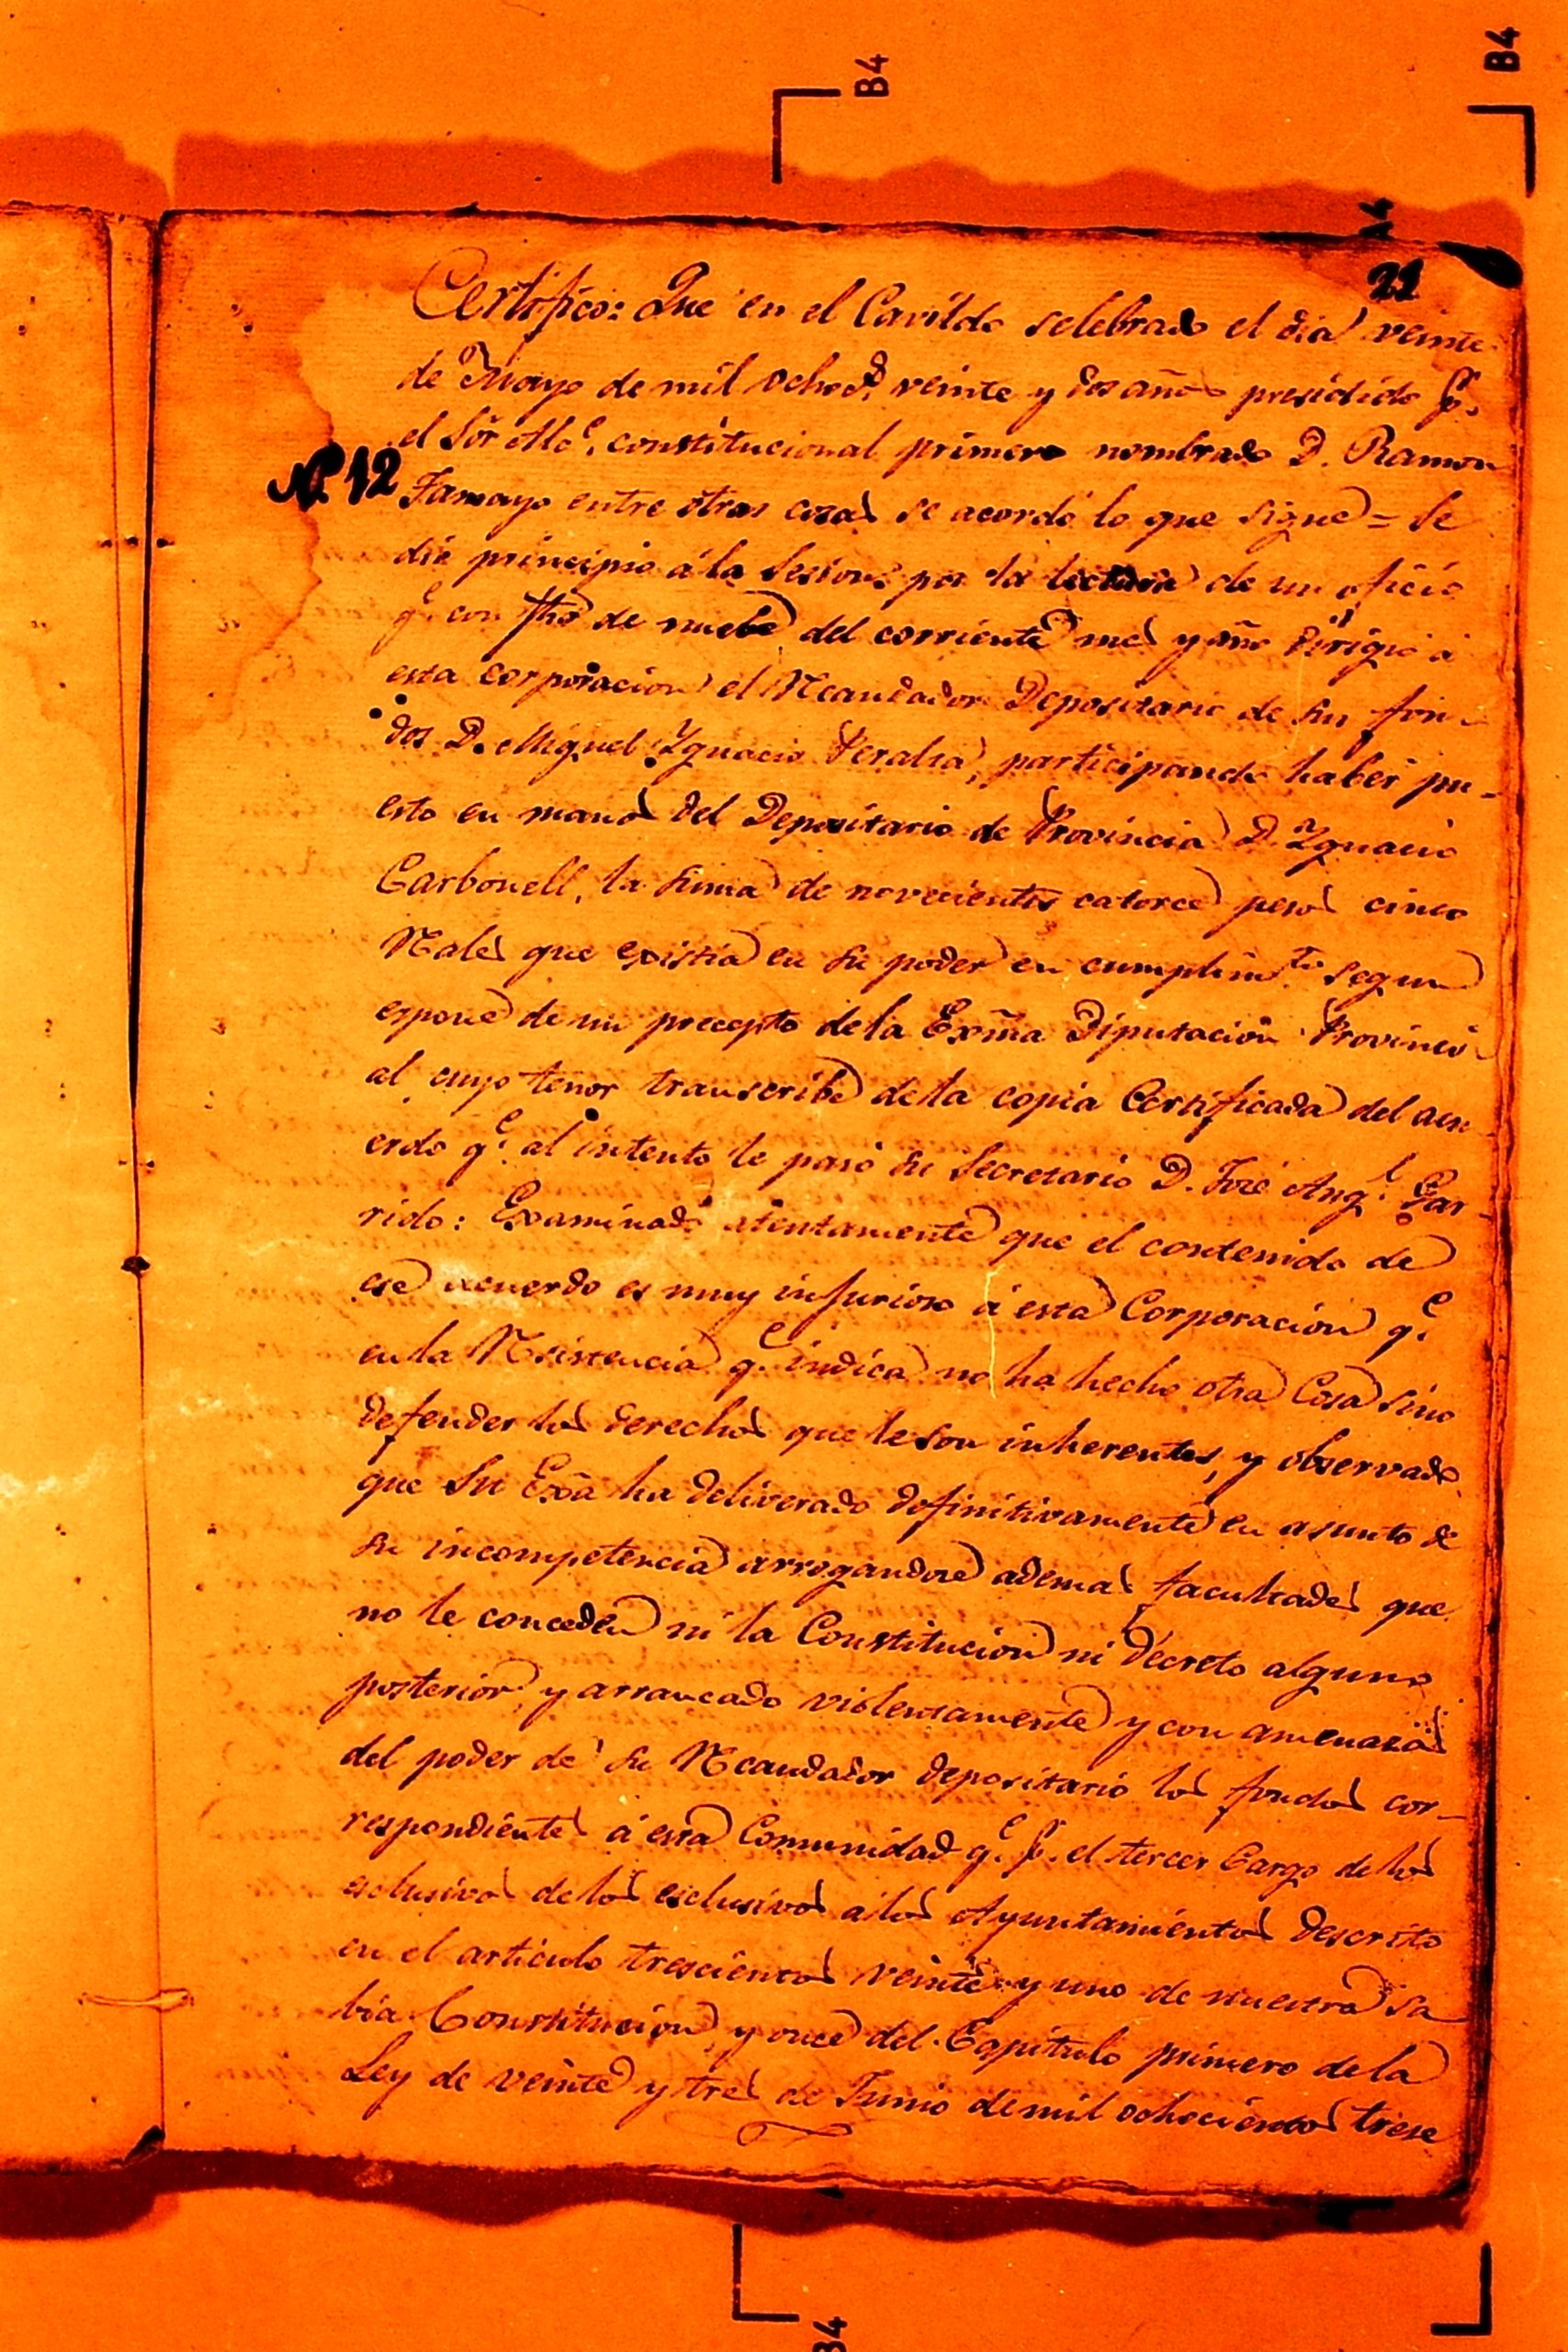 B4
B4
A4
21
Certifico: Que en el Cavildo selebrado el dia veinte
de Mayo de mil ochoc.s veinte y dos años presidido p.r
el Sor Alc.e constitucional primero nombrado D. Ramon
Nº 12
Tamayo entre otras cosas se acordó lo que sigue = Se
dió principio á la Sesion por la lectura de un oficio
q.e con fha de nuebe del corriente mes y año dirigió á
esta corporacion el Recaudador Depositario de sus fon-
dos D. Miguel Ygnacio Peralta, participando haber pu-
esto en manos del Depositario de Provincia D. Ygnacio
Carbonell, la suma de novecientos catorce pesos cinco
Rales que existia en su poder en cumplim.to segun
expone de un precepto de la Exma Diputacion Provinci-
al cuyo tenor transcribe de la copia Certificada del acu-
erdo q.e al intento le pasó su Secretario D. José Ang.l Gar-
rido: Examinado atentamente que el contenido de
ese acuerdo es muy injurioso á esta Corporacion q.e
en la Resistencia q.e indica no ha hecho otra Cosa sino
defender los derechos que le son inherentes, y observado
que Su Exa ha deliverado definitivamente en asunto de
su incompetencia arrogandose ademas facultades que
no le conceden ni la Constitucion ni decreto alguno
posterior, y arrancado violentamente y con amenazas
del poder de su Recaudador depositario los fondos cor-
respondientes á esta Comunidad q.e p.r el tercer Cargo de los
esclusivos de los esclusivos á los Ayuntamientos descrito
en el articulo trescientos veinte y uno de nuestra Sa
bia Constitucion, y once del Capitulo primero de la
Ley de veinte y tres de Junio de mil ochocientos trese
B4